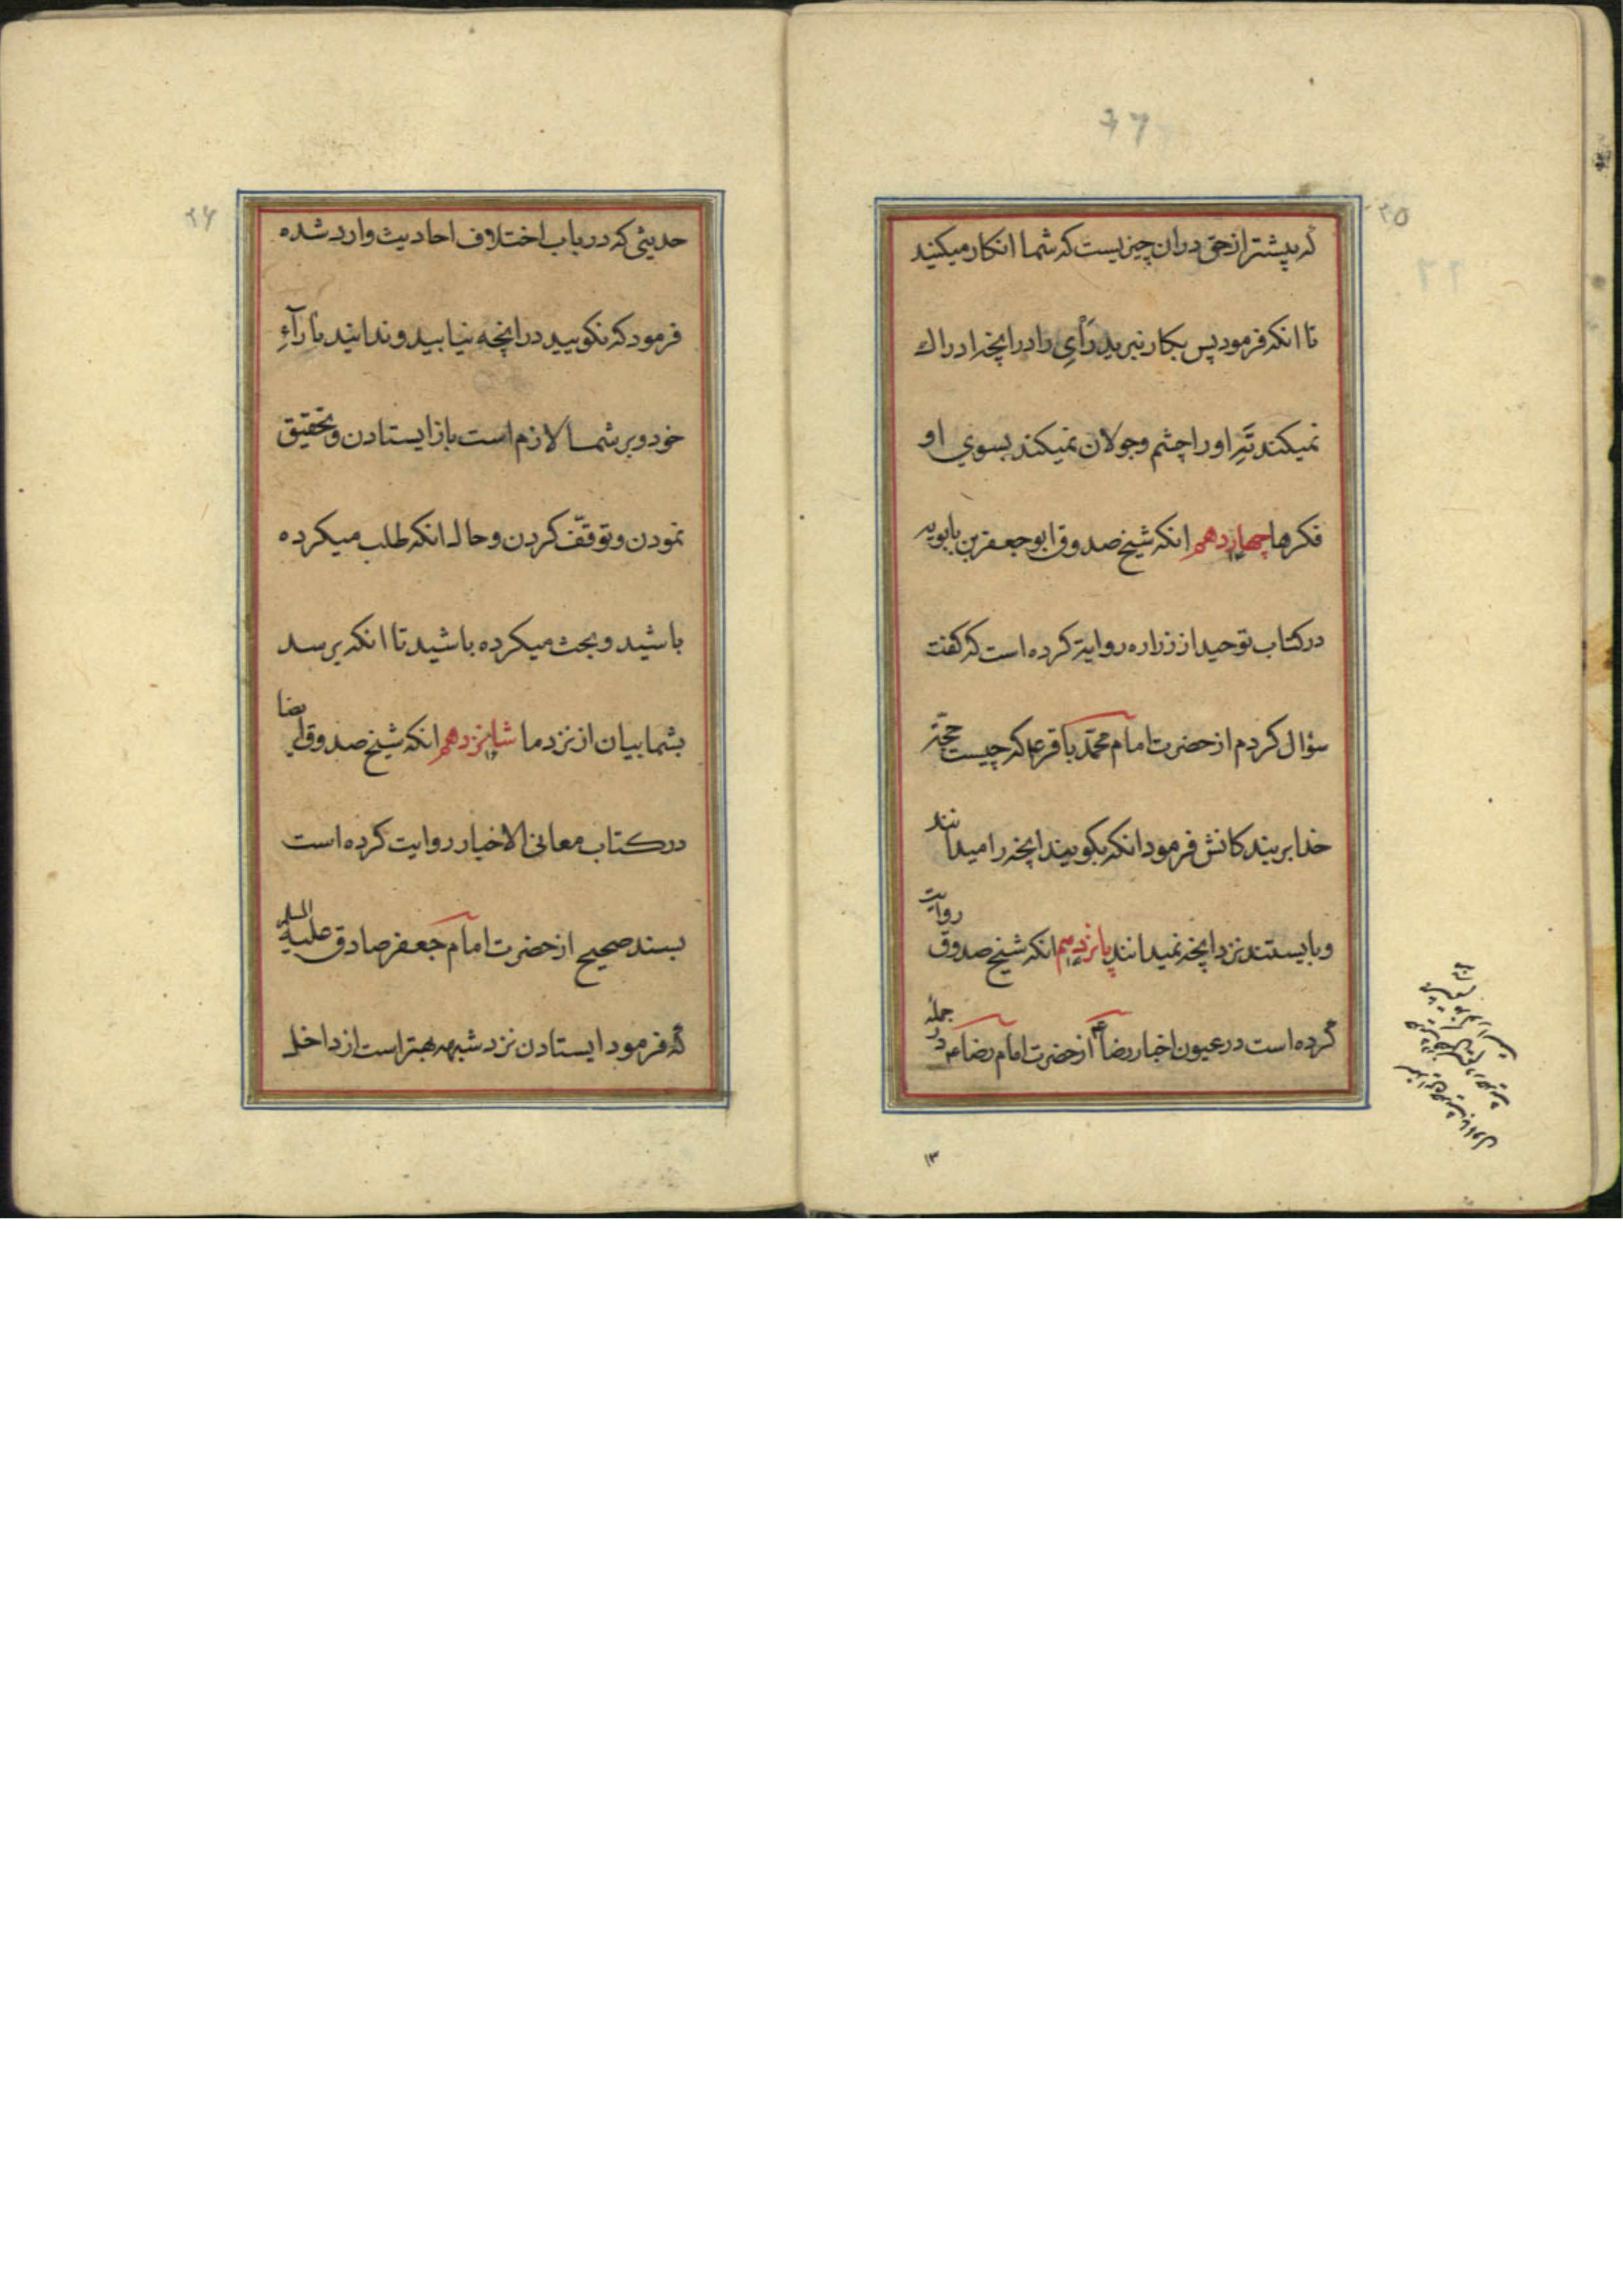 ۲۵
که بیشتر از حق در ان چیزیست که شما انکار میکنید
تا انکه فرمود پس بکار نبرید رَأیِ را در انچه ادراک
نمیکند تَهِ او را چشم و جولان نمیکند بسوی او
فکرها چهاردهم انکه شیخ صدوق ابو جعفر بن بابویه
در کتاب توحید از زراره روایة کرده است که کفت
سؤال کردم از حضرت امام محمّد باقر ع که چیست حجّة
خدا بر بندکانش فرمود انکه بکویند انچه را میدانند
و بایستند نزد انچه نمیدانند پانزدهم انکه شیخ صدوق روایت
کرده است در عیون اخبار رضا ع از حضرت امام رضا ع در جمله
۱۳
۲۶
حدیثی که در باب اختلاف احادیث وارد شده
فرمود که نکویید در انچه نیابید و ندانید بارآءِ
خود و بر شما لازم است باز ایستادن و تحقیق
نمودن و توقّف کردن و حال انکه طلب میکرده
باشید و بحث میکرده باشید تا انکه برسد
بشما بیان از نزد ما شانزدهم انکه شیخ صدوق ایضا
در کتاب معانی الاخبار روایت کرده است
بسند صحیح از حضرت امام جعفر صادق علیه السلم
که فرمود ایستادن نزد شبهه بهتر است از داخل